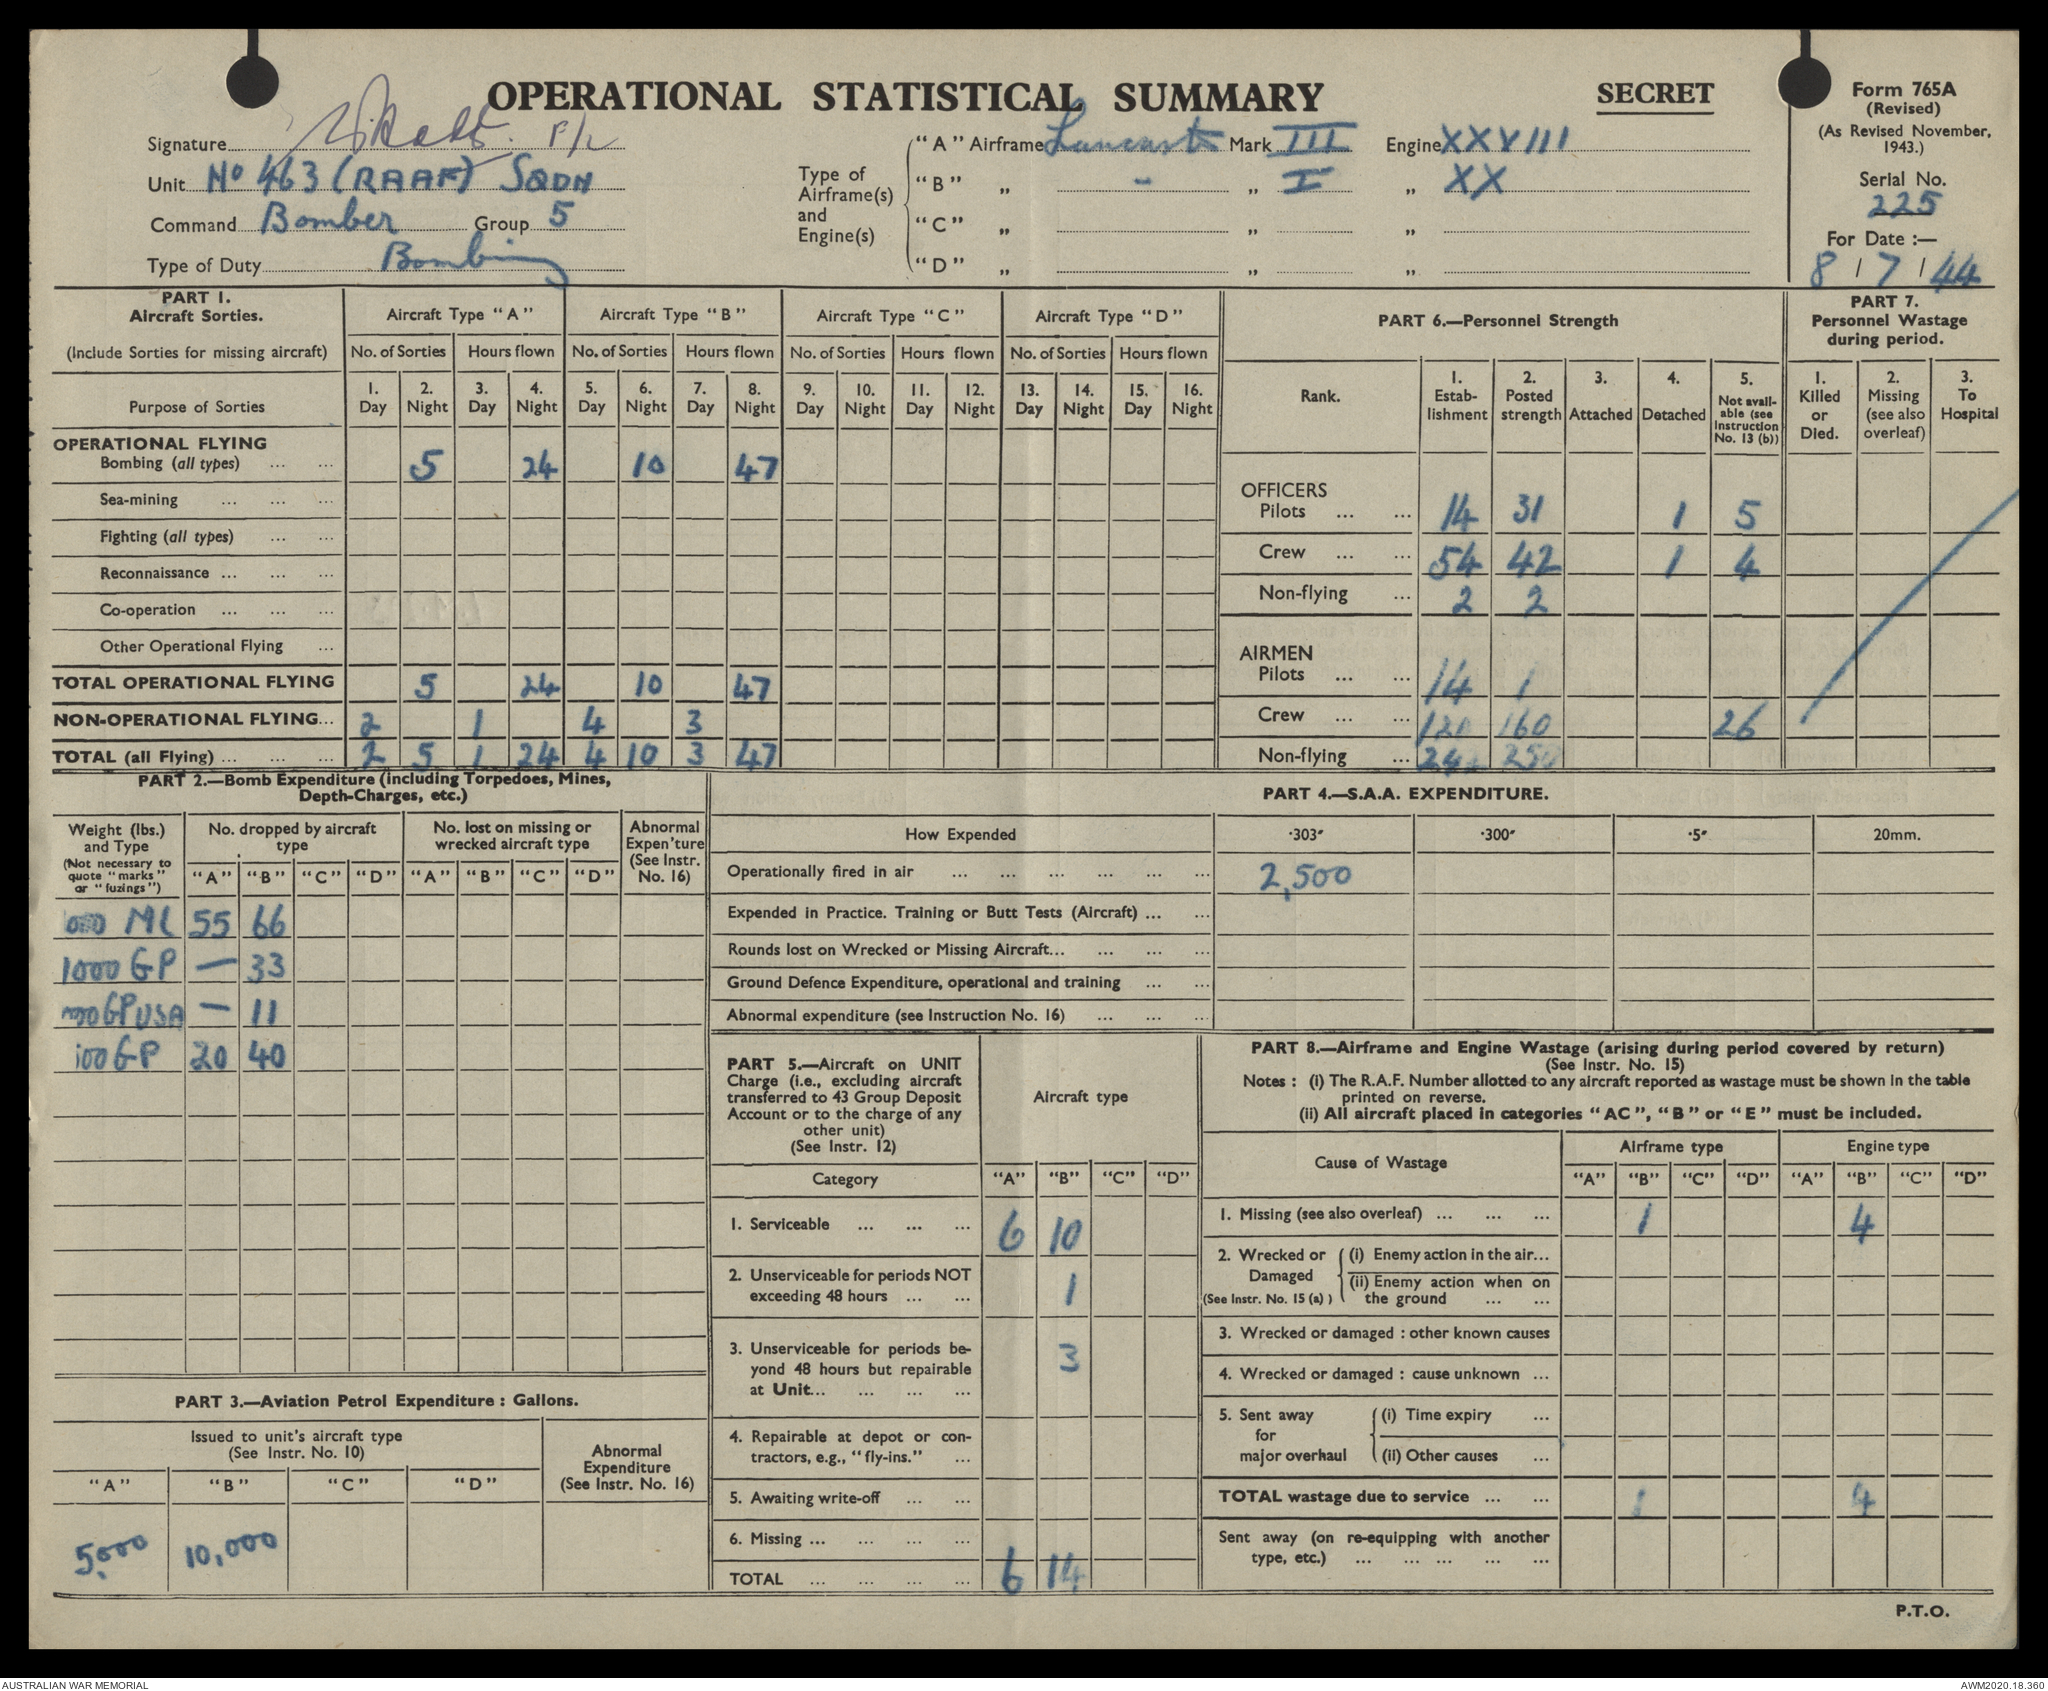 OPERATIONAL STATISTICAL SUMMARY
SECRET
Form 765A
(Revised)
(As Revised November, 1943.)
Serial No.
225
For Date :—
8 / 7 / 44
Signature F/L
Unit No 463 (RAAF) SQDN
Command Bomber Group 5
Type of Duty Bombing
Type of Airframe(s) and Engine(s)
"A" Airframe Lancaster Mark III Engine XXVIII
"B" „ - „ I „ XX
"C" „ „ „
"D" „ „ „
PART 1.
Aircraft Sorties.
(Include Sorties for missing aircraft)
Aircraft Type "A" Aircraft Type "B" Aircraft Type "C" Aircraft Type "D"
No. of Sorties Hours flown No. of Sorties Hours flown No. of Sorties Hours flown No. of Sorties Hours flown
Purpose of Sorties
1. Day 2. Night 3. Day 4. Night 5. Day 6. Night 7. Day 8. Night 9. Day 10. Night 11. Day 12. Night 13. Day 14. Night 15. Day 16. Night
OPERATIONAL FLYING
Bombing (all types) ... ... 5 24 10 47
Sea-mining ... ... ...
Fighting (all types) ... ...
Reconnaissance ... ... ...
Co-operation ... ... ...
Other Operational Flying ...
TOTAL OPERATIONAL FLYING 5 24 10 47
NON-OPERATIONAL FLYING... 2 1 4 3
TOTAL (all Flying) ... ... ... 2 5 1 24 4 10 3 47
PART 6.—Personnel Strength
Rank.
1. Estab-lishment
2. Posted strength
3. Attached
4. Detached
5. Not avail-able (see Instruction No. 13 (b))
OFFICERS
Pilots ... ... 14 31 1 5
Crew ... ... 54 42 1 4
Non-flying ... 2 2
AIRMEN
Pilots ... ... 14 1
Crew ... ... 120 160 26
Non-flying ...
PART 7.
Personnel Wastage
during period.
1. Killed or Died.
2. Missing (see also overleaf)
3. To Hospital
PART 2.—Bomb Expenditure (including Torpedoes, Mines,
Depth-Charges, etc.)
Weight (lbs.) and Type
(Not necessary to quote "marks" or "fuzings")
No. dropped by aircraft type
No. lost on missing or wrecked aircraft type
Abnormal Expen'ture (See Instr. No. 16)
"A" "B" "C" "D" "A" "B" "C" "D"
1000 MC 55 66
1000 GP — 33
1000 GP USA — 11
500 GP 20 40
PART 3.—Aviation Petrol Expenditure : Gallons.
Issued to unit's aircraft type
(See Instr. No. 10)
Abnormal Expenditure
(See Instr. No. 16)
"A" "B" "C" "D"
5,000 10,000
PART 4.—S.A.A. EXPENDITURE.
How Expended ·303" ·300" ·5" 20mm.
Operationally fired in air ... ... ... ... ... ... 2,500
Expended in Practice. Training or Butt Tests (Aircraft) ... ...
Rounds lost on Wrecked or Missing Aircraft... ... ... ...
Ground Defence Expenditure, operational and training ... ...
Abnormal expenditure (see Instruction No. 16) ... ... ...
PART 5.—Aircraft on UNIT
Charge (i.e., excluding aircraft
transferred to 43 Group Deposit
Account or to the charge of any
other unit)
(See Instr. 12)
Aircraft type
Category "A" "B" "C" "D"
1. Serviceable ... ... ... 6 10
2. Unserviceable for periods NOT
exceeding 48 hours ... ... 1
3. Unserviceable for periods be-
yond 48 hours but repairable
at Unit... ... ... ... 3
4. Repairable at depot or con-
tractors, e.g., "fly-ins." ...
5. Awaiting write-off ... ...
6. Missing ... ... ... ...
TOTAL ... ... ... ... 6 14
PART 8.—Airframe and Engine Wastage (arising during period covered by return)
(See Instr. No. 15)
Notes : (i) The R.A.F. Number allotted to any aircraft reported as wastage must be shown in the table
printed on reverse.
(ii) All aircraft placed in categories "AC", "B" or "E" must be included.
Cause of Wastage
Airframe type Engine type
"A" "B" "C" "D" "A" "B" "C" "D"
1. Missing (see also overleaf) ... ... ... 1 4
2. Wrecked or Damaged
(See Instr. No. 15 (a) )
(i) Enemy action in the air...
(ii) Enemy action when on
the ground ... ...
3. Wrecked or damaged : other known causes
4. Wrecked or damaged : cause unknown ...
5. Sent away for major overhaul
(i) Time expiry ...
(ii) Other causes ...
TOTAL wastage due to service ... ... 1 4
Sent away (on re-equipping with another
type, etc.) ... ... ... ... ...
P.T.O.
AUSTRALIAN WAR MEMORIAL
AWM2020.18.360